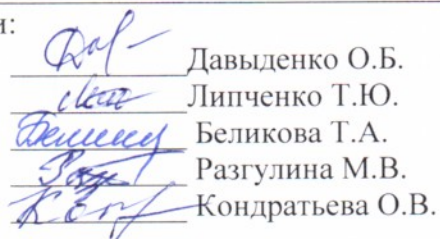 и:
Давыденко О.Б.
Липченко Т.Ю.
Беликова Т.А.
Разгулина М.В.
Кондратьева О.В.